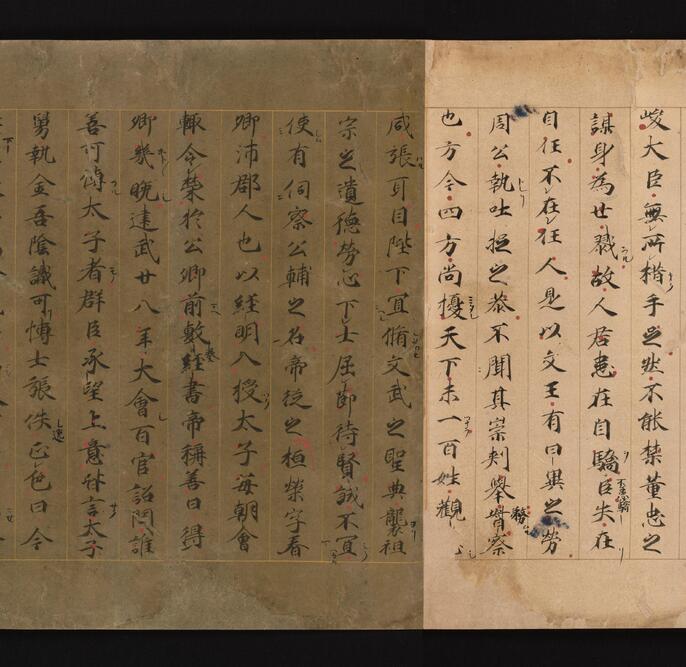 峻大臣無所楷手之然不能禁董忠之
謀身為世戮故人君患在自驕不患驕臣失在
自任不在任人是以文王有日昃之勞
周公執吐握之恭不聞其崇刾舉務督察
也方今四方尚擾天下未一百姓觀
咸張耳目陛下宜脩文武之聖典襲祖
宗之遺德勞心下士屈節待賢誠不宜
使有伺察公輔之名帝從之桓榮字春
卿沛郡人也以經明入授太子每朝會
輒令榮於公卿前敷奏經書帝稱善曰得
卿幾晚建武廿八年大會百官詔問誰
善可傅太子者群臣承望上意皆言太子
舅執金吾陰識可博士張佚正色曰今